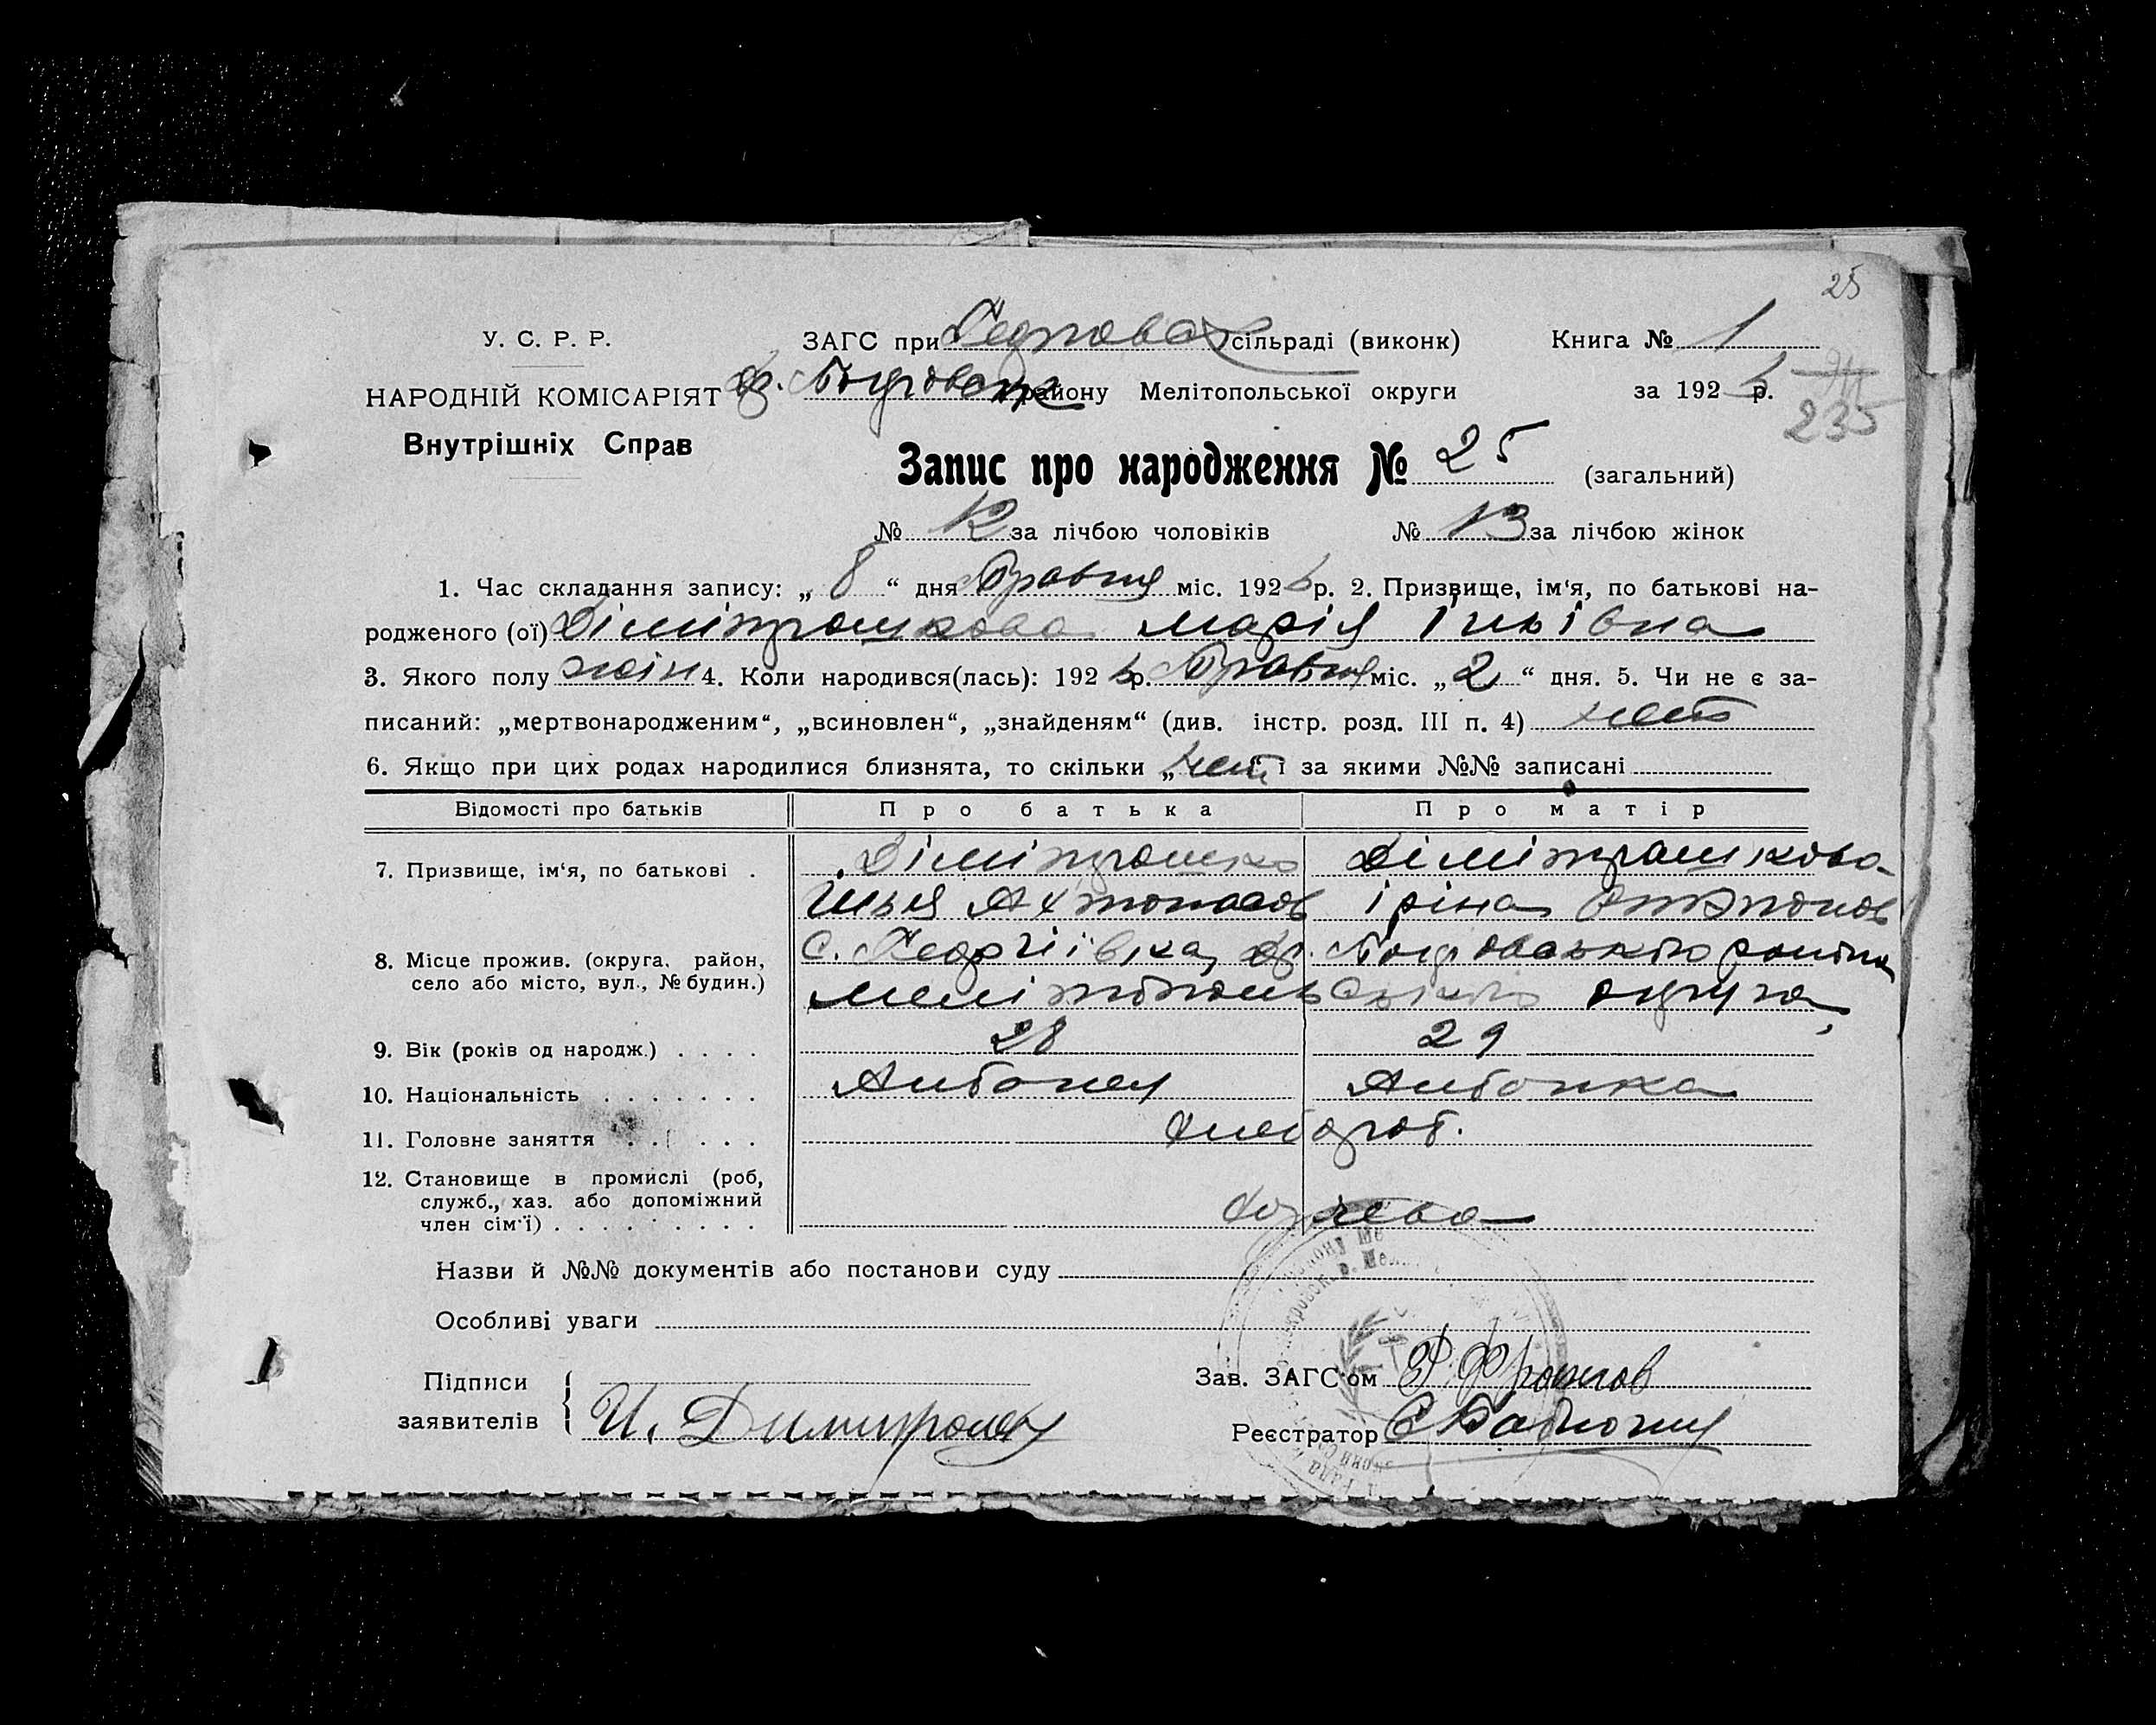 25
У. С. Р. Р.
ЗАГС при сільраді (виконк)
Книга № 1
НАРОДНІЙ КОМІСАРІЯТ
району Мелітопольської округи
за 1926 р.
235
Внутрішніх Справ
Запис про народження № 25 (загальний)
№ 12 за лічбою чоловіків № 13 за лічбою жінок
1. Час складання запису: „ 8 “ дня Травня міс. 1926 р. 2. Призвище, ім‘я, по батькові на-
родженого (ої) Дімітрашкова Марія Ільівна
3. Якого полу жін 4. Коли народився(лась): 1926 р. Травня міс. „ 2 “ дня. 5. Чи не є за-
писаний: „мертвонародженим“, „всиновлен“, „знайденям“ (див. інстр. розд. III п. 4) нет
6. Якщо при цих родах народилися близнята, то скільки „ нет і за якими №№ записані
Відомості про батьків
Про батька
Про матір
7. Призвище, ім‘я, по батькові .
Дімітрашко
Дімітрашкова
Ілья
Іріна
8. Місце прожив. (округа, район,
село або місто, вул., № будин.)
С. Георгіівка,
округа
9. Вік (років од народж.) . . . .
28
29
10. Національність . . . . . . .
Албанец
Албанка
11. Головне заняття . . . . . .
хлебороб.
12. Становище в промислі (роб,
служб., хаз. або допоміжний
член сім‘ї) . . . . . . . . .
Назви й №№ документів або постанови суду
Особливі уваги
Підписи
заявителів
И.
Зав. ЗАГС‘ом
Реєстратор